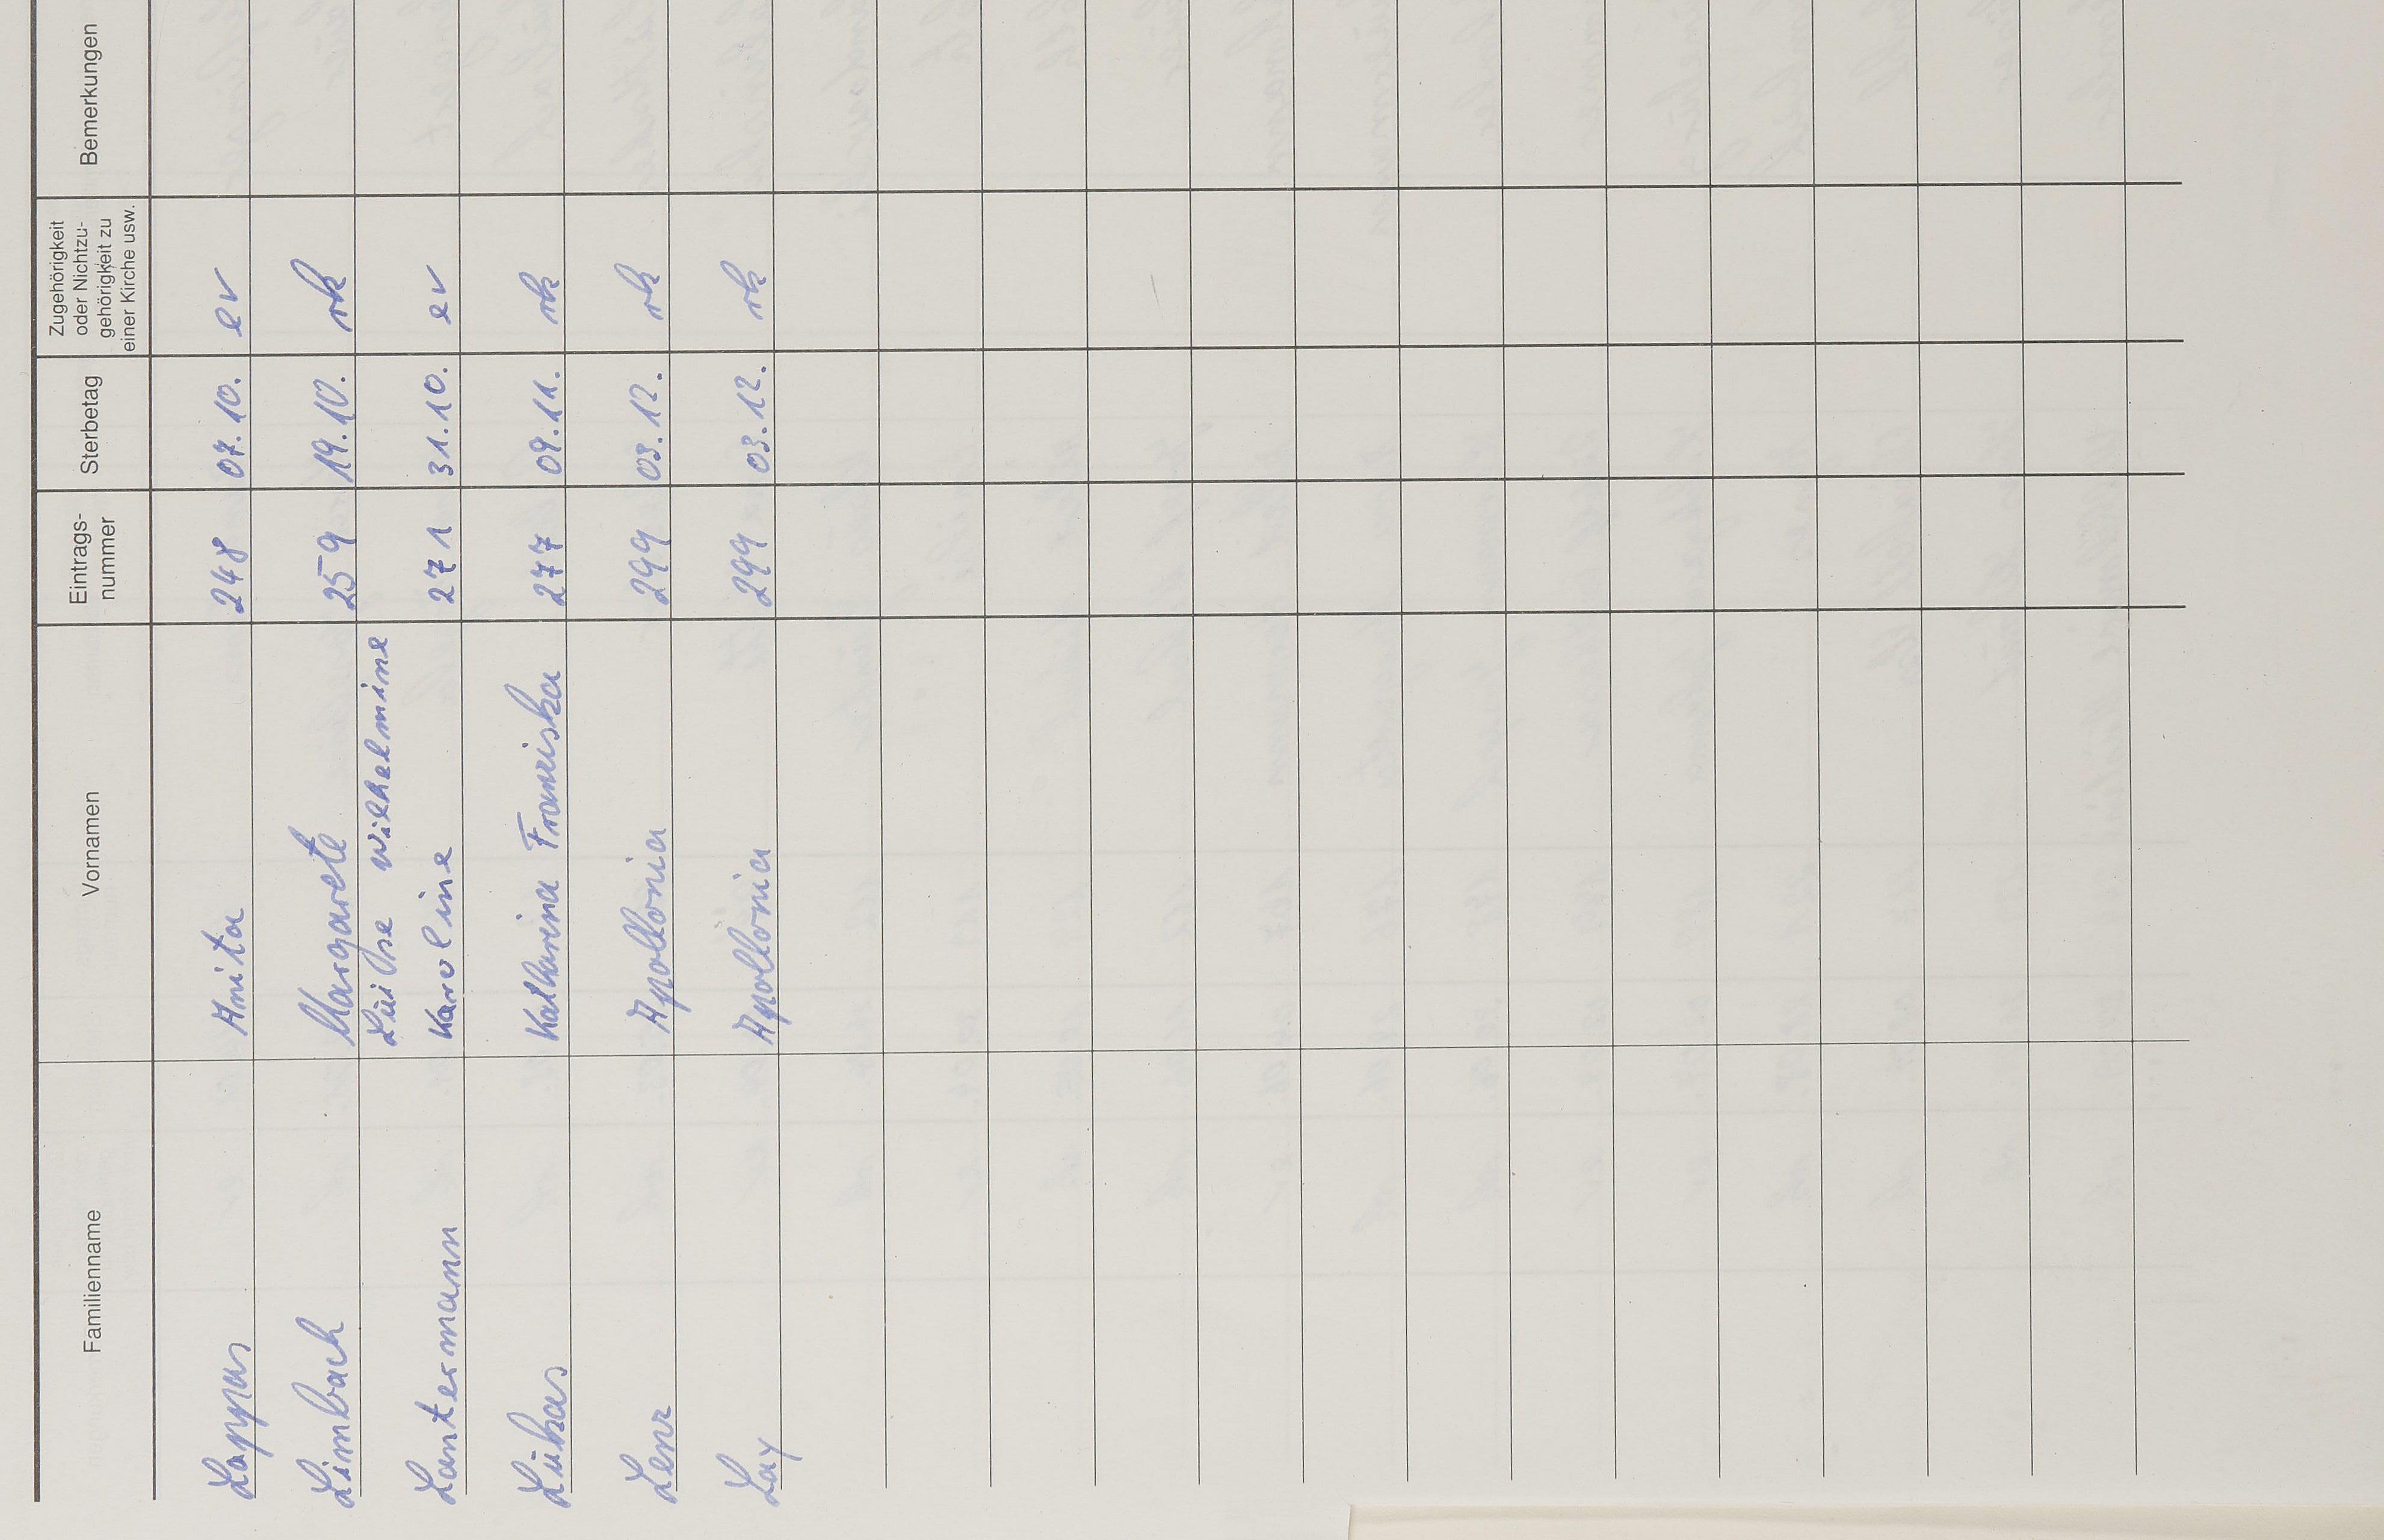 Familienname Vornamen Eintrags-nummer Sterbetag Zugehörigkeit oder Nichtzu-gehörigkeit zu einer Kirche usw. Bemerkungen
Lappas Anita 248 07.10. ev
Limbach Margarete 259 19.10. rk
Luise Wilhelmine
Lantermann Karoline 271 31.10. ev
Lukas Katharina Franziska 277 09.11. rk
Lenz Apollonia 299 03.12. rk
Lay Apollonia 299 03.12. rk